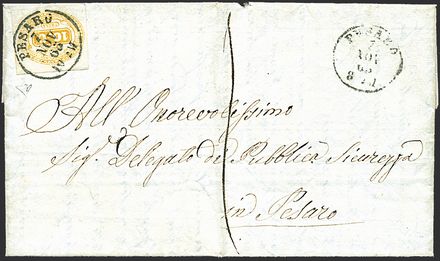 PESARO
7
NOV
63
PESARO
7
NOV
63
8
All' Onorevolissimo
Sigr. Delegato di Pubblica Sicurezza
in Pesaro